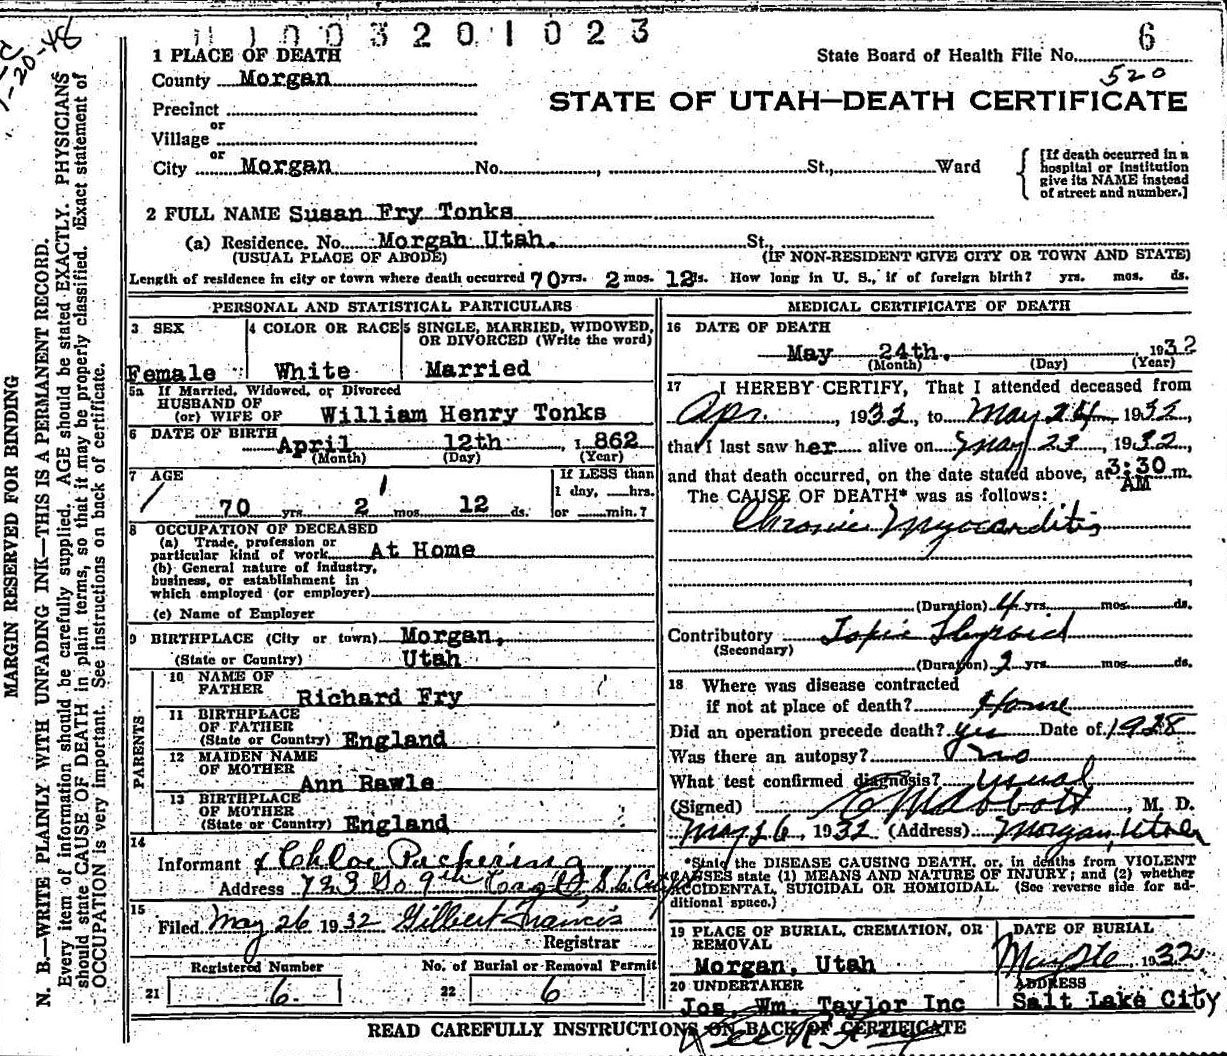 1003201023
6
State Board of Health File No.
520
1 PLACE OF DEATH
County Morgan
STATE OF UTAH—DEATH CERTIFICATE
Precinct
or
Village
or
City Morgan No. , St., Ward
[If death occurred in a hospital or institution give its NAME instead of street and number.]
2 FULL NAME Susan Fry Tonks
(a) Residence. No. Morgan Utah. St.,
(USUAL PLACE OF ABODE) (IF NON-RESIDENT GIVE CITY OR TOWN AND STATE)
Length of residence in city or town where death occurred 70 yrs. 2 mos. 12 ds. How long in U. S., if of foreign birth? yrs. mos. ds.
PERSONAL AND STATISTICAL PARTICULARS
3 SEX
Female
4 COLOR OR RACE
White
5 SINGLE, MARRIED, WIDOWED,
OR DIVORCED (Write the word)
Married
5a If Married, Widowed, or Divorced
HUSBAND OF
(or) WIFE OF William Henry Tonks
6 DATE OF BIRTH April 12th 1862
(Month) (Day) (Year)
7 AGE
70 yrs. 2 mos. 12 ds.
If LESS than
1 day, hrs.
or min.?
8 OCCUPATION OF DECEASED
(a) Trade, profession or
particular kind of work At Home
(b) General nature of industry,
business, or establishment in
which employed (or employer)
(c) Name of Employer
9 BIRTHPLACE (City or town) Morgan,
(State or Country) Utah
PARENTS
10 NAME OF
FATHER Richard Fry
11 BIRTHPLACE
OF FATHER
(State or Country) England
12 MAIDEN NAME
OF MOTHER
Ann Rawle
13 BIRTHPLACE
OF MOTHER
(State or Country) England
14
Informant Chloe Pickering
Address 723 So 9th East
15
Filed May 26 1932 Gilbert Francis
Registrar
Registered Number
21 6
No. of Burial or Removal Permit
22 6
MEDICAL CERTIFICATE OF DEATH
16 DATE OF DEATH
May 24th. 1932
(Month) (Day) (Year)
17 I HEREBY CERTIFY, That I attended deceased from
Apr. , 1932, to May 24, 1932,
that I last saw her alive on May 23, 1932
and that death occurred, on the date stated above, at 3:30 m.
AM
The CAUSE OF DEATH* was as follows:
Chronic Myocarditis
(Duration) 4 yrs. mos. ds.
Contributory Toxic Thyroid
(Secondary)
(Duration) 2 yrs. mos. ds.
18 Where was disease contracted
if not at place of death? Home
Did an operation precede death? yes Date of 1928
Was there an autopsy? no
What test confirmed diagnosis? usual
(Signed) Abbott, M. D.
May 26, 1932 (Address) Morgan, Utah
*State the DISEASE CAUSING DEATH, or, in deaths from VIOLENT
CAUSES state (1) MEANS AND NATURE OF INJURY; and (2) whether
ACCIDENTAL, SUICIDAL OR HOMICIDAL. (See reverse side for ad-
ditional space.)
19 PLACE OF BURIAL, CREMATION, OR
REMOVAL
Morgan, Utah
DATE OF BURIAL
May 1932
20 UNDERTAKER
Jos. Wm. Taylor Inc
ADDRESS
Salt Lake City
READ CAREFULLY INSTRUCTIONS ON BACK OF CERTIFICATE
MARGIN RESERVED FOR BINDING
N. B.—WRITE PLAINLY WITH UNFADING INK—THIS IS A PERMANENT RECORD.
Every item of information should be carefully supplied. AGE should be stated EXACTLY. PHYSICIANS
should state CAUSE OF DEATH in plain terms, so that it may be properly classified. Exact statement of
OCCUPATION is very important. See instructions on back of certificate.